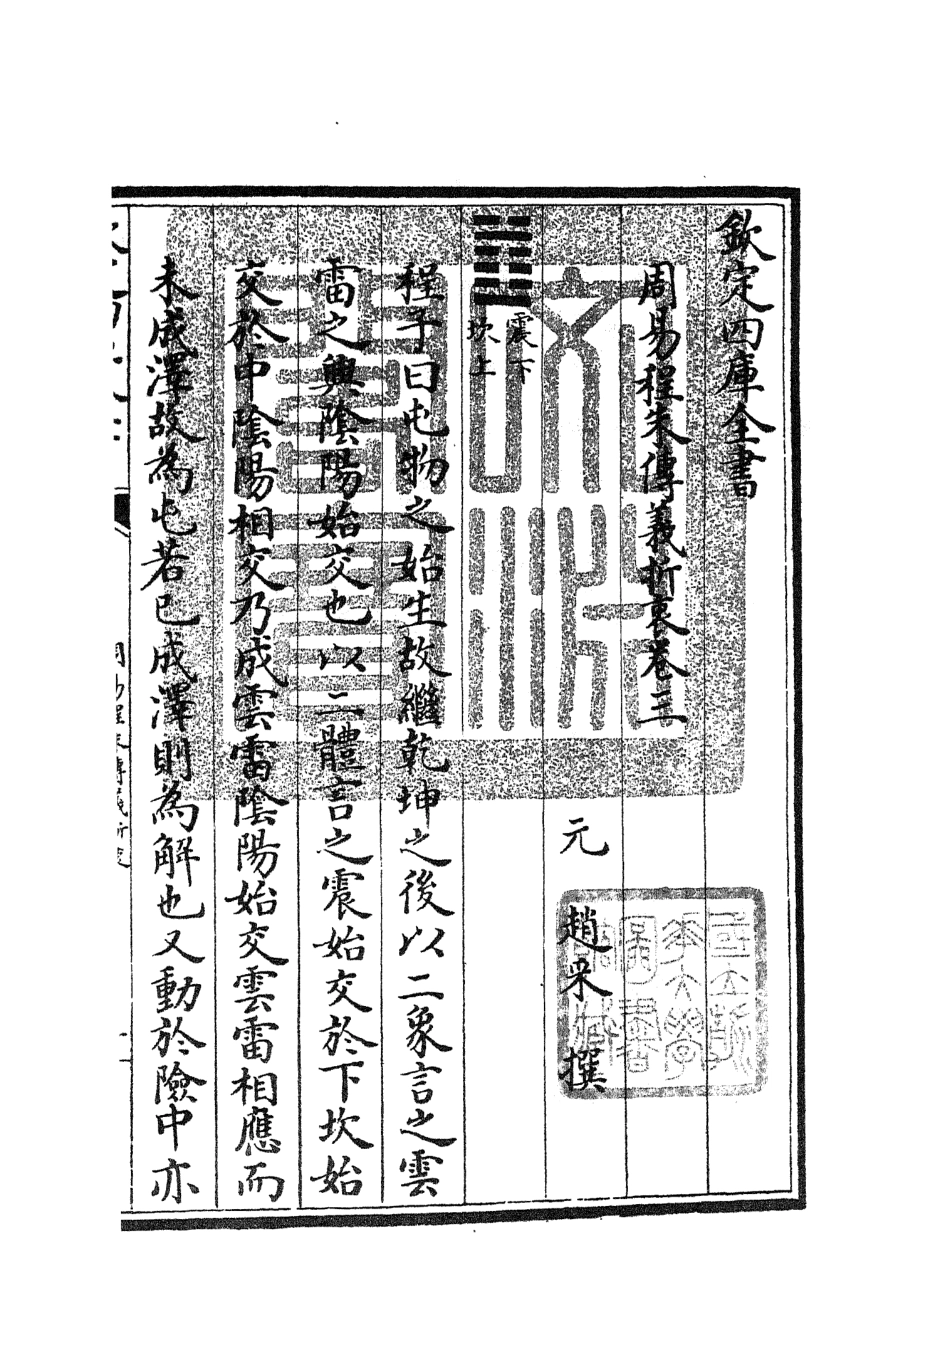 欽定四庫全書
周易程朱傳義折衷卷三
元 趙采 撰
震下
坎上
程子曰屯物之始生故繼乾坤之後以二象言之雲
雷之興陰陽始交也以二體言之震始交於下坎始
交於中陰陽相交乃成雲雷陰陽始交雲雷相應而
未成澤故為屯若已成澤則為解也又動於險中亦